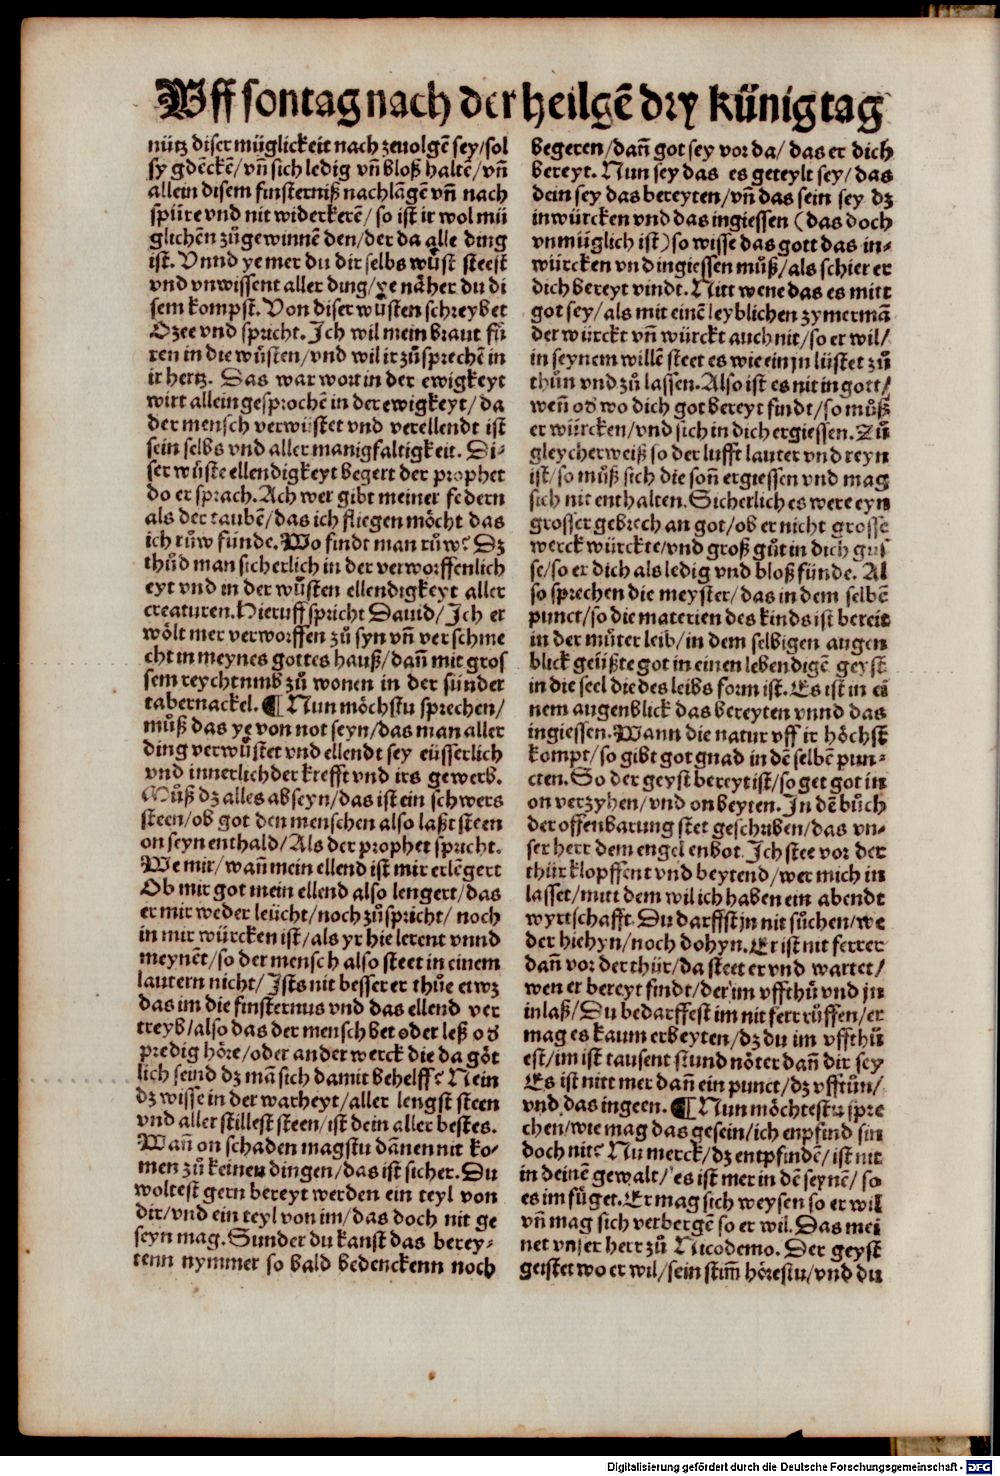 Uff sontag nach der heilgē dry künig tag
nütz diser müglickeit nach zeuolgē sey/sol
sy gdēckē/vn̄ sich ledig vn̄ bloß haltē/vn̄
allein disem finsterniß nachlāgē vn̄ nach
spüre vnd nit widerkerē/so ist ir wol mü
glichē zůgewinnē den/der da alle ding
ist. Vnnd ye mer du dir selbs wůst steest
vnd vnwissent aller ding/ye näher du di
sem kompst. Von diser wůsten schreybet
Ozee vnd spricht. Ich wil mein braut fü
ren in die wůsten/vnd wil ir zůsprechē in
ir hertz. Das war wort in der ewigkeyt
wirt allein gesprochē in der ewigkeyt/da
der mensch verwüstet vnd verellendt ist
sein selbs vnd aller manigfaltigkeit. Di-
ser wůste ellendigkeyt begert der prophet
do er sprach. Ach wer gibt meiner federn
als der taubē/das ich fliegen möcht das
ich růw funde. Wo findt man růw? Dz
thůd man sicherlich in der verworffenlich
eyt vnd in der wůsten ellendigkeyt aller
creaturen. Hieruff spricht Dauid/Ich er
wölt mer verworffen zů syn vn̄ verschme
cht in meynes gottes hauß/dan̄ mit gros
sem reychtumb zů wonen in der sünder
tabernackel. ¶ Nun möchstu sprechen/
můß das ye von not seyn/das man aller
ding verwůstet vnd ellendt sey eüsserlich
vnd innerlich der krefft vnd irs gewerb.
Můß dz alles ab seyn/das ist ein schwers
steen/ob got den menschen also laßt steen
on seyn enthald/Als der prophet spricht.
We mir/wan̄ mein ellend ist mir erlēgert
Ob mir got mein ellend also lengert/das
er mir weder leücht/noch zůspricht/noch
in mir würcken ist/als yr hie lerent vnnd
meynēt/so der mensch also steet in einem
lautern nicht/Ists nit besser er thůe etwz
das im die finsternus vnd das ellend ver
treyb/also das der mensch bet oder leß od
predig höre/oder ander werck die da göt
lich seind dz mā sich damit behelff? Nein
dz wisse in der warheyt/aller lengst steen
vnd aller stillest steen/ist dein aller bestes.
Wan̄ on schaden magstu dānen nit ko-
men zů keinen dingen/das ist sicher. Du
woltest gern bereyt werden ein teyl von
dir/vnd ein teyl von im/das doch nit ge
seyn mag. Sunder du kanst das berey-
tenn nymmer so bald bedenckenn noch
begeren/dan̄ got sey vor da/das er dich
bereyt. Nun sey das es geteylt sey/das
dein sey das bereyten/vn̄ das sein sey dz
inwürcken vnd das ingiessen (das doch
vnmüglich ist) so wisse das gott das in-
würcken vnd ingiessen můß/als schier er
dich bereyt vindt. Nitt wene das es mitt
got sey/als mit einē leyblichen zymermā
der würckt vn̄ würckt auch nit/so er wil/
in seynem willē steet es wie ein jn lüstet zů
thůn vnd zů lassen. Also ist es nit in gott/
wen̄ od wo dich got bereyt findt/so můß
er würcken/vnd sich in dich ergiessen. Zů
gleycher weiß so der lufft lauter vnd reyn
ist/so můß sich die son̄ ergiessen vnd mag
sich nit enthalten. Sicherlich es were eyn
grosser gebrech an got/ob er nicht grosse
werck würckte/vnd groß gůt in dich gus
se/so er dich als ledig vnd bloß fünde. Al
so sprechen die meyster/das in dem selbē
punct/so die materien des kinds ist bereit
in der můter leib/in dem selbigen augen
blick geüßte got in einen lebendigē geyst
in die seel die des leibs form ist. Es ist in ei
nem augenblick das bereyten vnnd das
ingiessen. Wann die natur vff ir höchst
kompt/so gibt got gnad in dē selbē pun-
cten. So der geyst bereyt ist/so get got in
on verzyhen/vnd on beyten. In dē bůch
der offenbarung stet geschriben/das vn-
ser herr dem engel enbot. Ich stee vor der
thür klopffent vnd beytend/wer mich in
lasset/mitt dem wil ich haben ein abendt
wyrtschafft. Du darffst jn nit sůchen/we
der hiehyn/noch dohyn. Er ist nit ferrer
dan̄ vor der thür/da steet er vnd wartet/
wen er bereyt findt/der im vffthů vnd jn
inlaß/Du bedarffest im nit ferr růffen/er
mag es kaum erbeyten/dz du im vffthů
est/im ist tausent stund nöter dan̄ dir sey
Es ist nitt mer dan̄ ein punct/dz vfftůn/
vnd das ingeen. ¶ Nun möchtestu spre
chen/wie mag das gesein/ich enpfind sin
doch nit? Nu merck/dz entpfindē/ist nit
in deinē gewalt/es ist mer in dē seynē/so
es im fůget. Er mag sich weysen so er wil
vn̄ mag sich verbergē so er wil. Das mei
net vnser herr zů Nicodemo. Der geyst
geistet wo er wil/sein stim̄ hörestu/vnd du
Digitalisierung gefördert durch die Deutsche Forschungsgemeinschaft - DFG